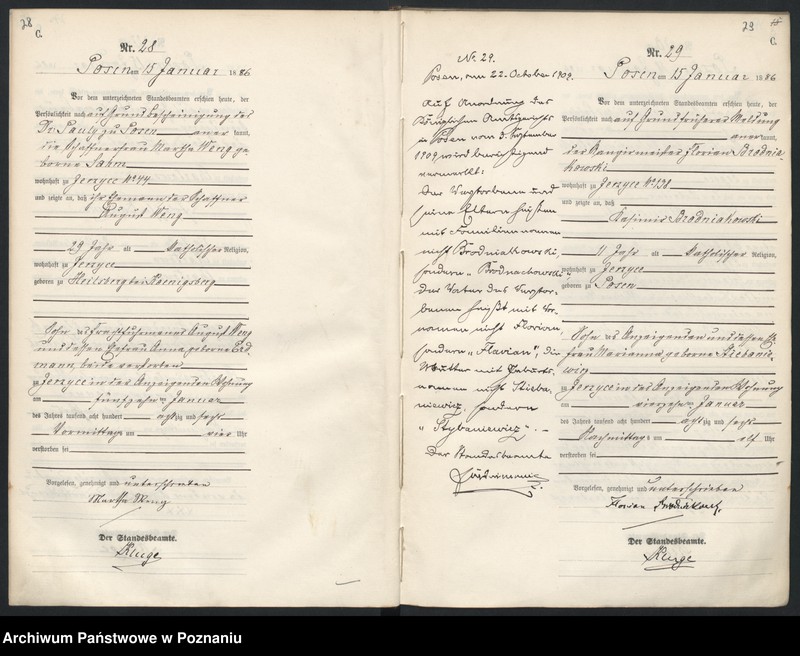 28
C.
Nr. 28
Posen am 15 Januar 1886
Vor dem unterzeichneten Standesbeamten erschien heute, der
Persönlichkeit nach auf Grund Bescheinigung des
Dr. Pauly zu Posen anerkannt,
die Schaffnerfrau Martha Weng ge-
borne Sahm
wohnhaft zu Jerzyce No 44
und zeigte an, daß ihr Ehemann der Schaffner
August Weng
29 Jahr alt Katholischer Religion,
wohnhaft zu Jerzyce
geboren zu Heilsberg bei Koenigsberg
Sohn des Frachtfuhrmanns August Weng
und dessen Ehefrau Anna geborne Erd-
mann, beide verstorben
zu Jerzyce in des Anzeigenden Wohnung
am fünfzehnten Januar
des Jahres tausend acht hundert achtzig und sechs
Vormittags um vier Uhr
verstorben sei
Vorgelesen, genehmigt und unterschrieben
Martha Weng
Der Standesbeamte.
Kluge
29
C.
Nr. 29
Posen am 15 Januar 1886
Vor dem unterzeichneten Standesbeamten erschien heute, der
Persönlichkeit nach auf Grund früherer Meldung
anerkannt,
der Rangirmeister Florian Brodnia-
kowski
wohnhaft zu Jerzyce No 138
und zeigte an, daß
Kasimir Brodniakowski
11 Jahr alt Katholischer Religion,
wohnhaft zu Jerzyce
geboren zu Posen
Sohn des Anzeigenden und dessen Ehe-
frau Marianna geborne Stiebanie-
wicz
zu Jerzyce in des Anzeigenden Wohnung
am vierzehnten Januar
des Jahres tausend acht hundert achtzig und sechs
Nachmittags um elf Uhr
verstorben sei
Vorgelesen, genehmigt und unterschrieben
Florian
Der Standesbeamte.
Kluge
No. 29.
Posen, am 22. October 1909.
Auf Anordnung des
Königlichen Amtsgerichts
in Posen vom 3. September
1909 wird berichtigend
vermerkt:
Der Verstorbene und
seine Eltern heißen
mit Familiennamen
nicht Brodniakowski,
sondern "Brodnachowski".
Der Vater des Verstor-
benen heißt mit Vor-
namen nicht Florian,
sondern "Flavian", die
Mutter mit Geburts-
namen nicht Stieba-
niewicz, sondern
"Stybaniewicz". -
Der Standesbeamte
Archiwum Państwowe w Poznaniu